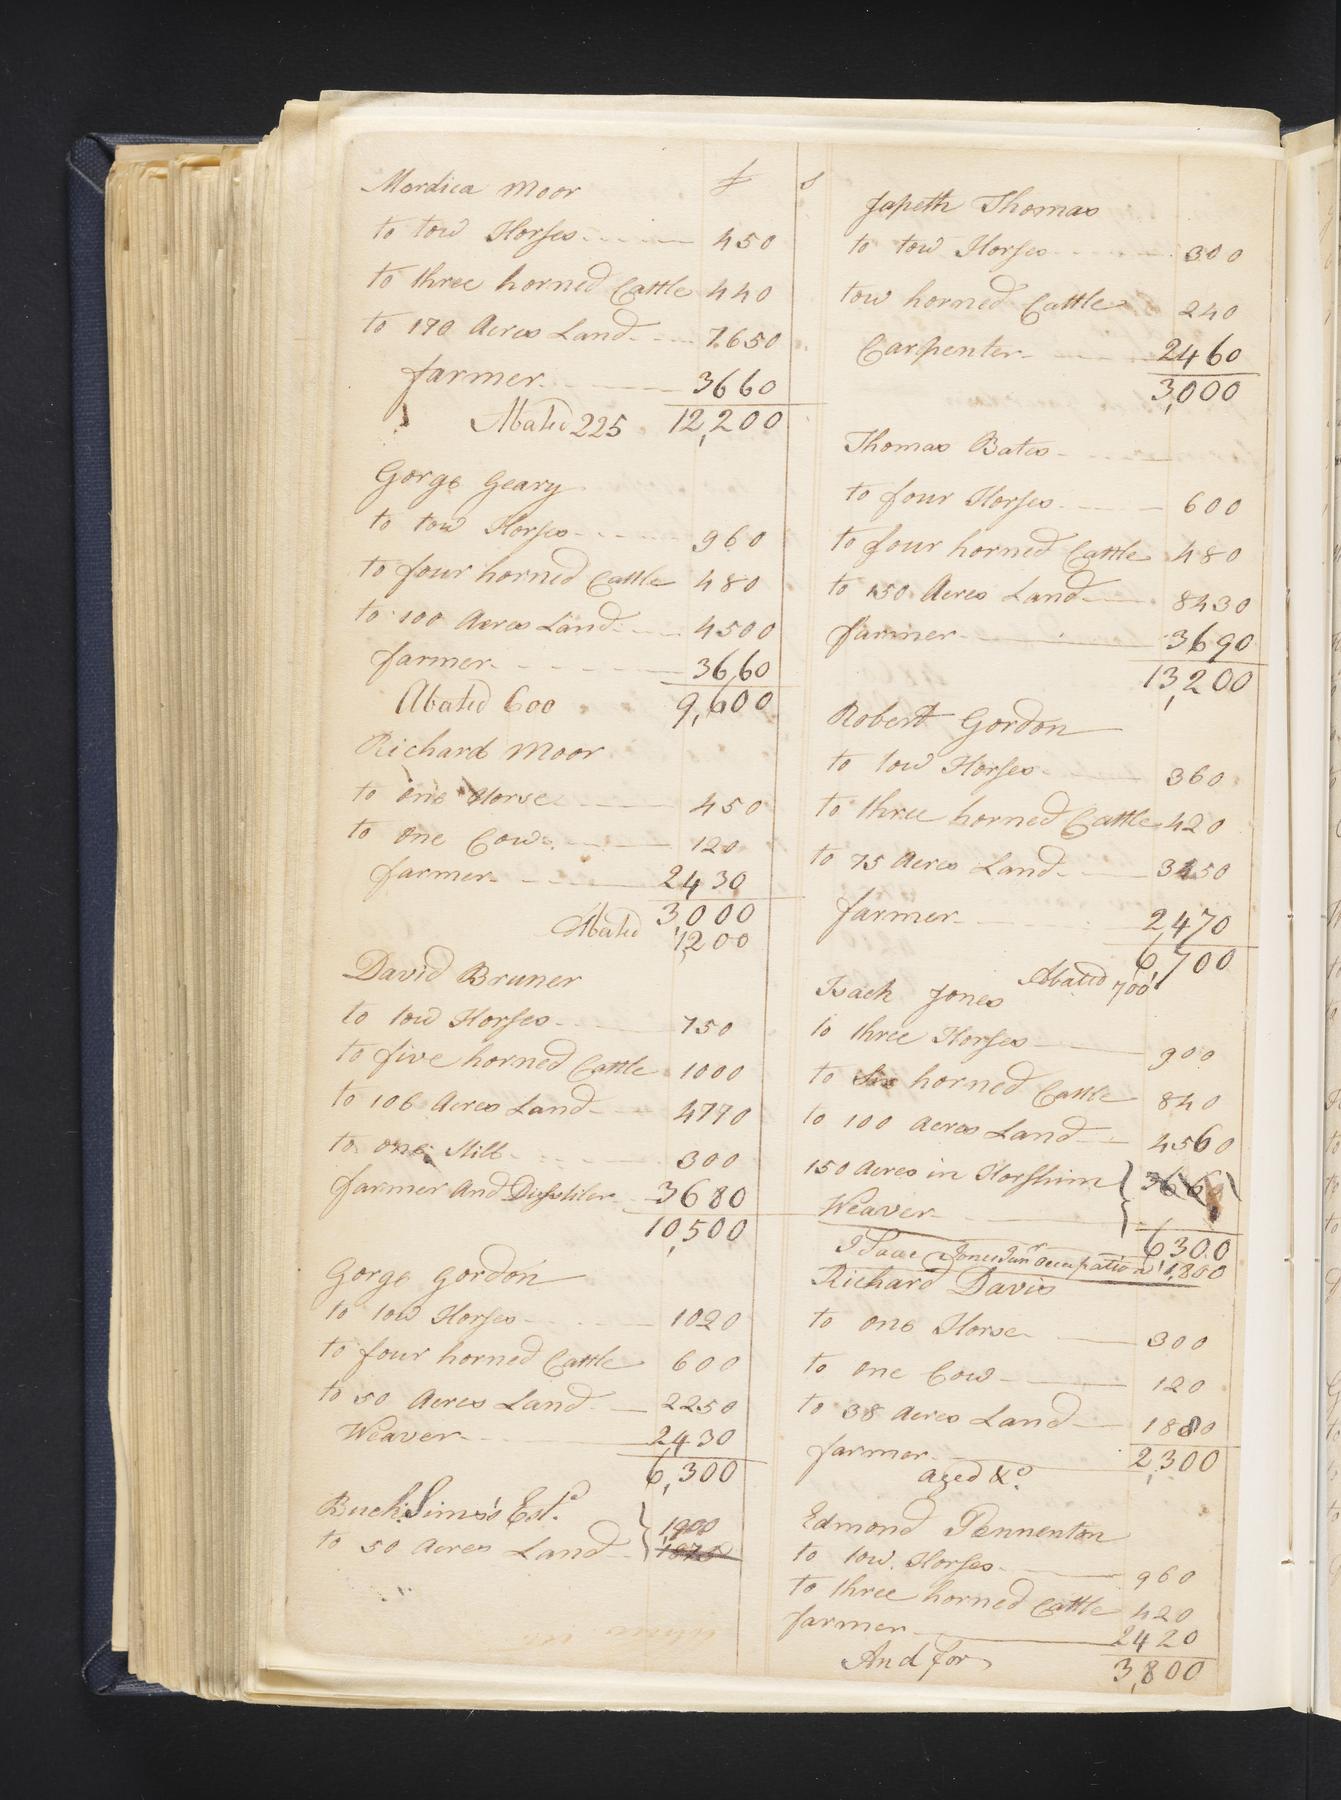 £ s
Mordica Moor
to tow Horses 450
to three horned Cattle 440
to 170 Acres Land 7650
farmer 3660
Abated 225 12,200
Gorge Geary
to tow Horses 960
to four horned Cattle 480
to 100 Acres Land 4500
farmer 3660
Abated 600 9,600
Richard Moor
to one Horse 450
to one Cow 120
farmer 2430
3,000
Abated 1,200
David Bruner
to tow Horses 750
to five horned Cattle 1000
to 106 Acres Land 4770
to one Still 300
farmer And Disstiler 3680
10,500
Gorge Gordon
to tow Horses 1020
to four horned Cattle 600
to 50 Acres Land 2250
Weaver 2430
6,300
Buck Sims's Estd
to 50 Acres Land } 1,900
1875
Japeth Thomas
to tow Horses 300
tow horned Cattle 240
Carpenter 2460
3,000
Thomas Bates
to four Horses 600
to four horned Cattle 480
to 150 Acres Land 8430
farmer 3690
13,200
Robert Gordon
to tow Horses 360
to three horned Cattle 420
to 75 Acres Land 3450
farmer 2470
6,700
Abated 700
Isack Jones
to three Horses 900
to Six horned Cattle 840
to 100 Acres Land 4560
150 Acres in Horshim } 3660
Weaver
6300
Isaac Jones Junr occupation 1,800
Richard Davis
to one Horse 300
to one Cow 120
to 38 Acres Land 1880
farmer 2,300
aged &c.
Edmond Pennenton
to tow Horses 960
to three horned Cattle 420
farmer 2420
And for 3,800